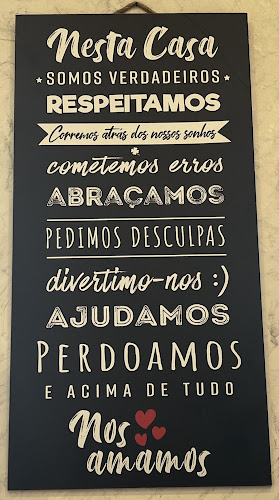 Nesta Casa
SOMOS VERDADEIROS
RESPEITAMOS
Corremos atrás dos nossos sonhos
cometemos erros
ABRAÇAMOS
PEDIMOS DESCULPAS
divertimo-nos :)
AJUDAMOS
PERDOAMOS
E ACIMA DE TUDO
Nos
amamos